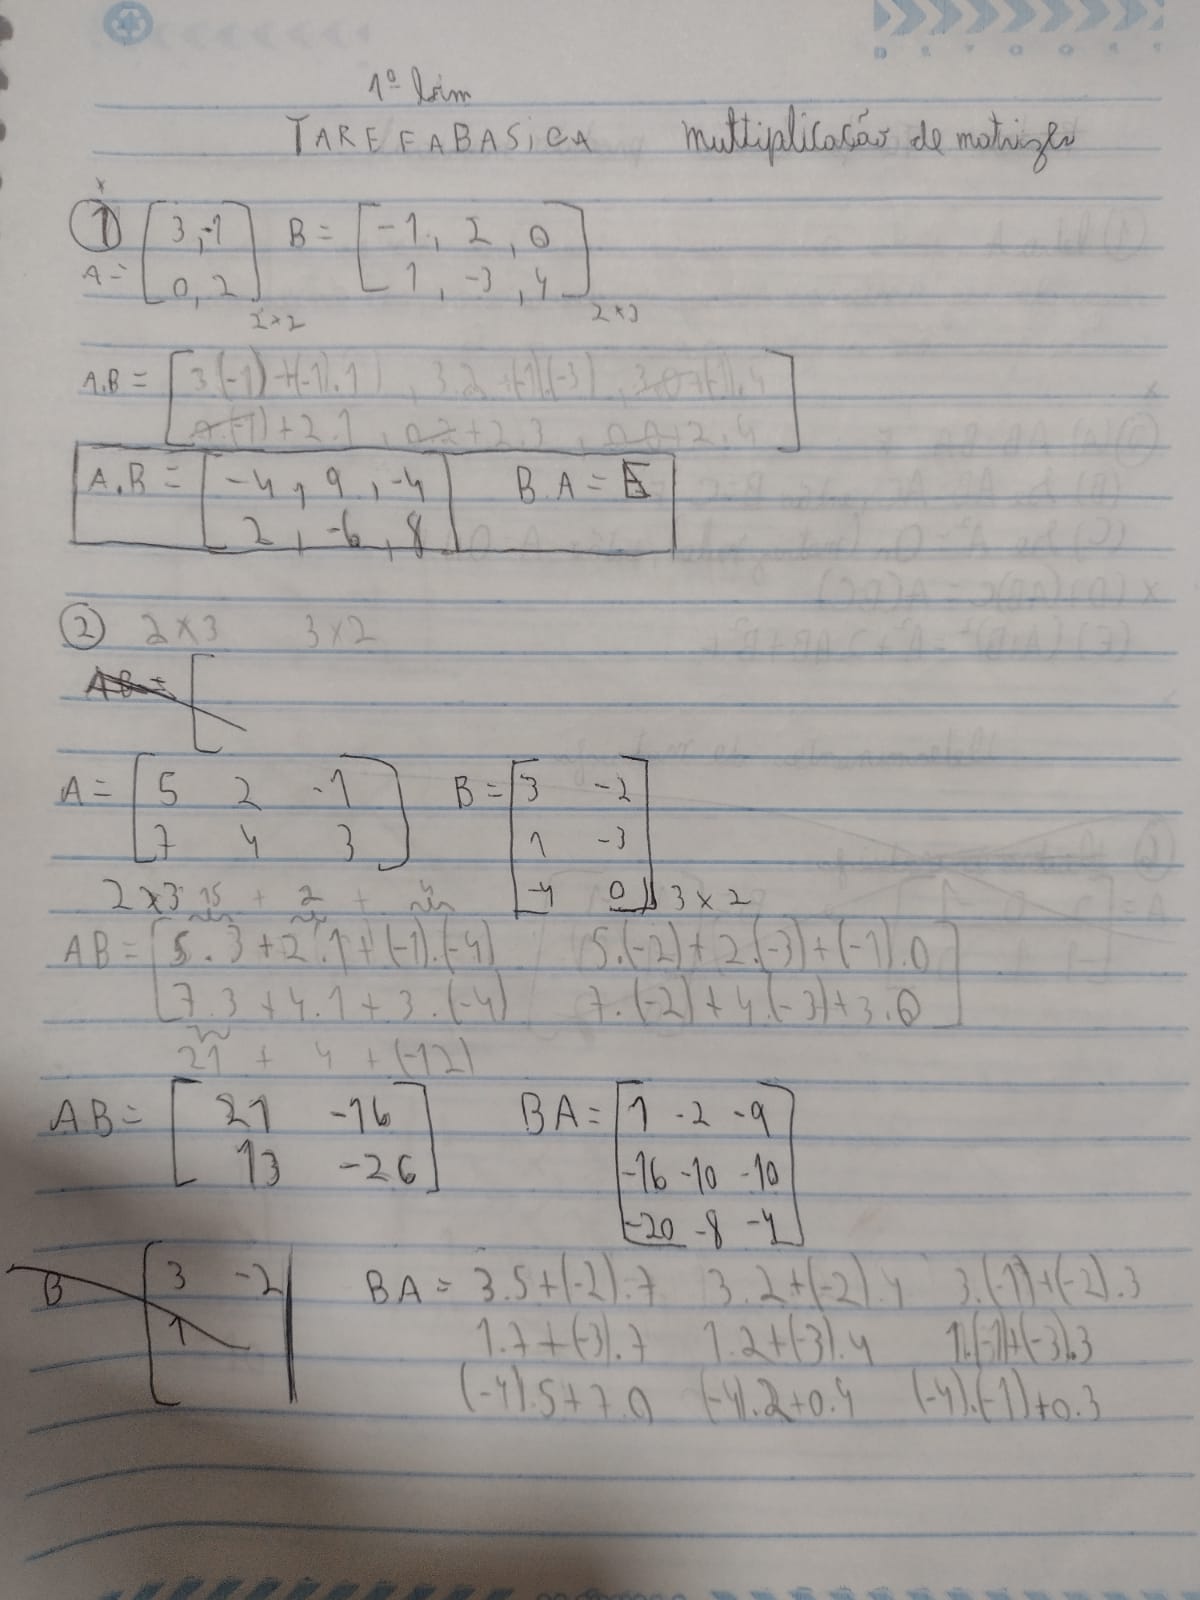 1º bim
TAREFA BASICA multiplicação de matrizes
① A = [ 3, -1 B = [ -1, 2, 0
0, 2 ] 2×2 1, -3, 4 ] 2×3
A.B = [ 3.(-1)+(-1).1, 3.2+(-1).(-3), 3.0+(-1).4
0.(-1)+2.1, 0.2+2.3, 0.0+2.4 ]
A.B = [ -4, 9, -4 B.A = ∄
2, -6, 8 ]
② 2×3 3×2
AB = [
A = [ 5 2 -1 B = [ 3 -2
7 4 3 ] 1 -3
2×3 -4 0 ] 3×2
15 + 2 + 4
AB = [ 5.3+2.1+(-1).(-4) 5.(-2)+2.(-3)+(-1).0
7.3+4.1+3.(-4) 7.(-2)+4.(-3)+3.0 ]
21 + 4 + (-12)
AB = [ 21 -16 BA = [ 1 -2 -9
13 -26 ] -16 -10 -10
-20 -8 -4 ]
B [ 3 -2 BA = 3.5+(-2).7 3.2+(-2).4 3.(-1)+(-2).3
1 1.7+(-3).7 1.2+(-3).4 1.(-1)+(-3).3
(-4).5+7.0 (-4).2+0.4 (-4).(-1)+0.3